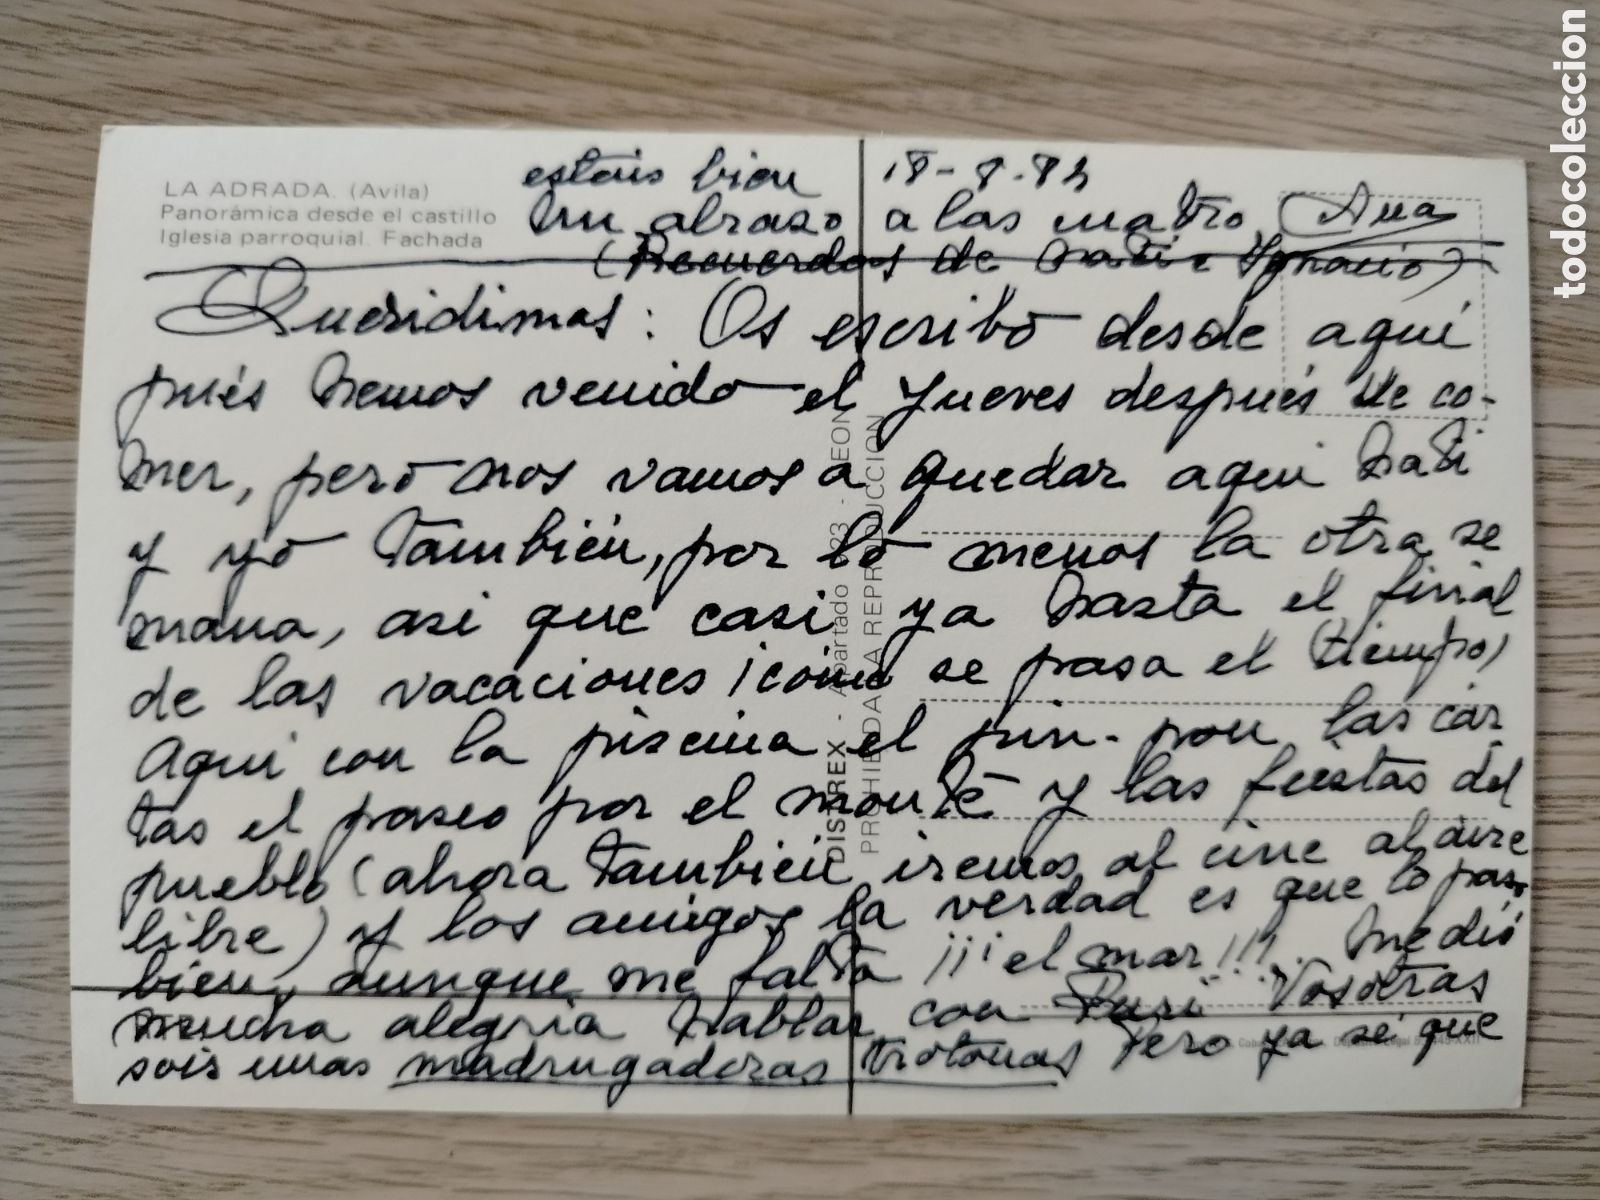 LA ADRADA. (Avila)
Panorámica desde el castillo
Iglesia parroquial. Fachada
18-8-82
Queridimas: Os escribo desde aquí
pués hemos venido el Jueves después de co-
mer, pero nos vamos a quedar aqui Nati
y yo también, por lo menos la otra se
mana, asi que casi ya hasta el final
de las vacaciones ¡como se pasa el (tiempo)
Aqui con la piscina el pin-pon las car
tas el paseo por el monte y las fiestas del
pueblo (ahora también iremos al cine al aire
libre) y los amigos la verdad es que lo paso
bien, aunque me falta ¡¡¡el mar!!!. Me dió
mucha alegria hablar con Puri Vosotras
sois unas madrugadoras trotonas Pero ya sé que
estais bien
Un abraso a las cuatro Ana
(Recuerdos de Nati e Ignacio)
DISTREX - Apartado 523 - LEON
PROHIBIDA LA REPRODUCCION
todocoleccion